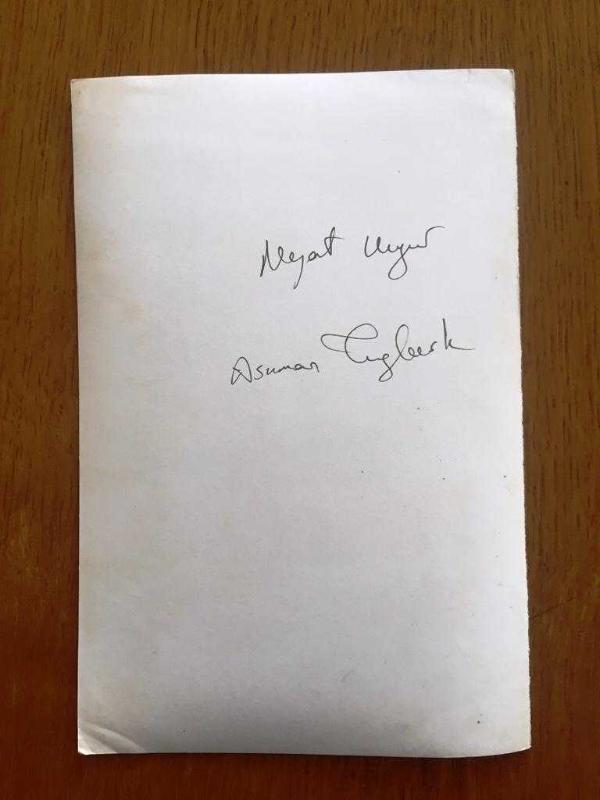 Nejat Uygur
Asuman Tugberk